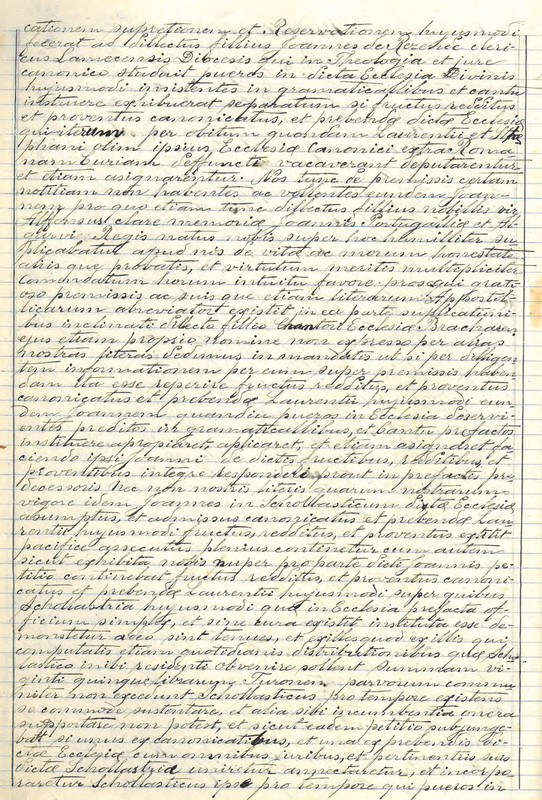 cationem supretionem et Reservationem hujusmodi
fecerat ad dillectus fillius Joannes de Rezende cleri-
cus Lamecensis Diocesis qui in Theologia et jure
canonico studuit pueros in dicta Ecclesia Divinis
hujusmodi insistentes in gramaticalibus et cantu
instruere exhibuerat separatum si fructus redditus
et proventus canonicatus, et prebendæ dictæ Ecclesiæ
qui iterum per obitum quondam Laurentii et
phani olim ipsius, Ecclesiæ Canonici extra Roma-
nam Curiam deffuncti vacaverant deputarentur
et etiam asignarentur. Nos tunc de premissis certam
notitiam non habentes ac vollentes eundem Joan-
nem pro quo etiam tunc dillectus fillius nobillis vir
Alffonsus clare memoriæ Joannis Portugalliæ et Al
Regis natus nobis super hoc humilliter su-
plicabatur apud nos de vita ac morum honestate
aliisque probatis, et virtutum meritis multipliciter
Comendatum horum intuitu favore prosequi grati-
oso premissis ac suis que etiam literarum Appostol-
licarum abreviator existit, in ea parte suplicationi-
bus inclinati dilecto fillio Cantori Ecclesiæ Bracharen
ejus etiam propsio nomine non expresso per alias
nostras literas Dedimus in mandatis ut si per diligen-
tem informationem per eum super premissis haben-
dam ita esse reperiret fructus redditus, et proventus
canonicatus et prebendæ Laurentii hujusmodi eun-
dem Joannem quamdiu pueros in Ecclesia Deservi-
entes preditos in gramaticallibus, et Cantu prefactos
instituere apropiaret, aplicaret, et etiam asignaret fa-
ciendo ipsi Joanni de dictis fructibus, redditibus et
proventibus integre responderi prout in prefactis pre
decessoris nec non nostris literis quarum nostrarum
vigore idem Joannes in Schollasticum Dictæ Ecclesiæ
assumptus, et admissus canonicatus et prebendæ Lau-
rentii hujusmodi fructus, redditus, et proventus extitit
pacifice assecutus plenius continetur cum autem
sicut exhibita nobis nuper pro parte dicti Joannis pe-
titio continebat fructus redditus, et proventus canoni-
catus et prebendæ Laurentii hujusmodi super quibus
Schollastria hujusmodi quæ in Ecclesia prefacta of-
ficium simplex, et sine cura existit instituta esse de-
monstetur adeo sint tenues, et exilles quod ex illis qui
computatis etiam quotidianis distributionibus quæ Schol-
lastico inibi residenti obvenire sollent summam vi-
ginti quinque librarum Turonen parvorum commu-
niter non excedunt Schollasticus pro tempore existens
se commode sustentare, et alia sibi incumbentia onera
supportare non potest, et sicut eadem petitio subjunge-
bat si unus ex canonicatibus, et una ex prebendis di-
ctæ Ecclesiæ cum omnibus juribus, et pertinentiis suis
dictæ Schollastriæ uniretur annectaretur, et incorpo-
raretur Schollasticus ipse pro tempore qui pueros in